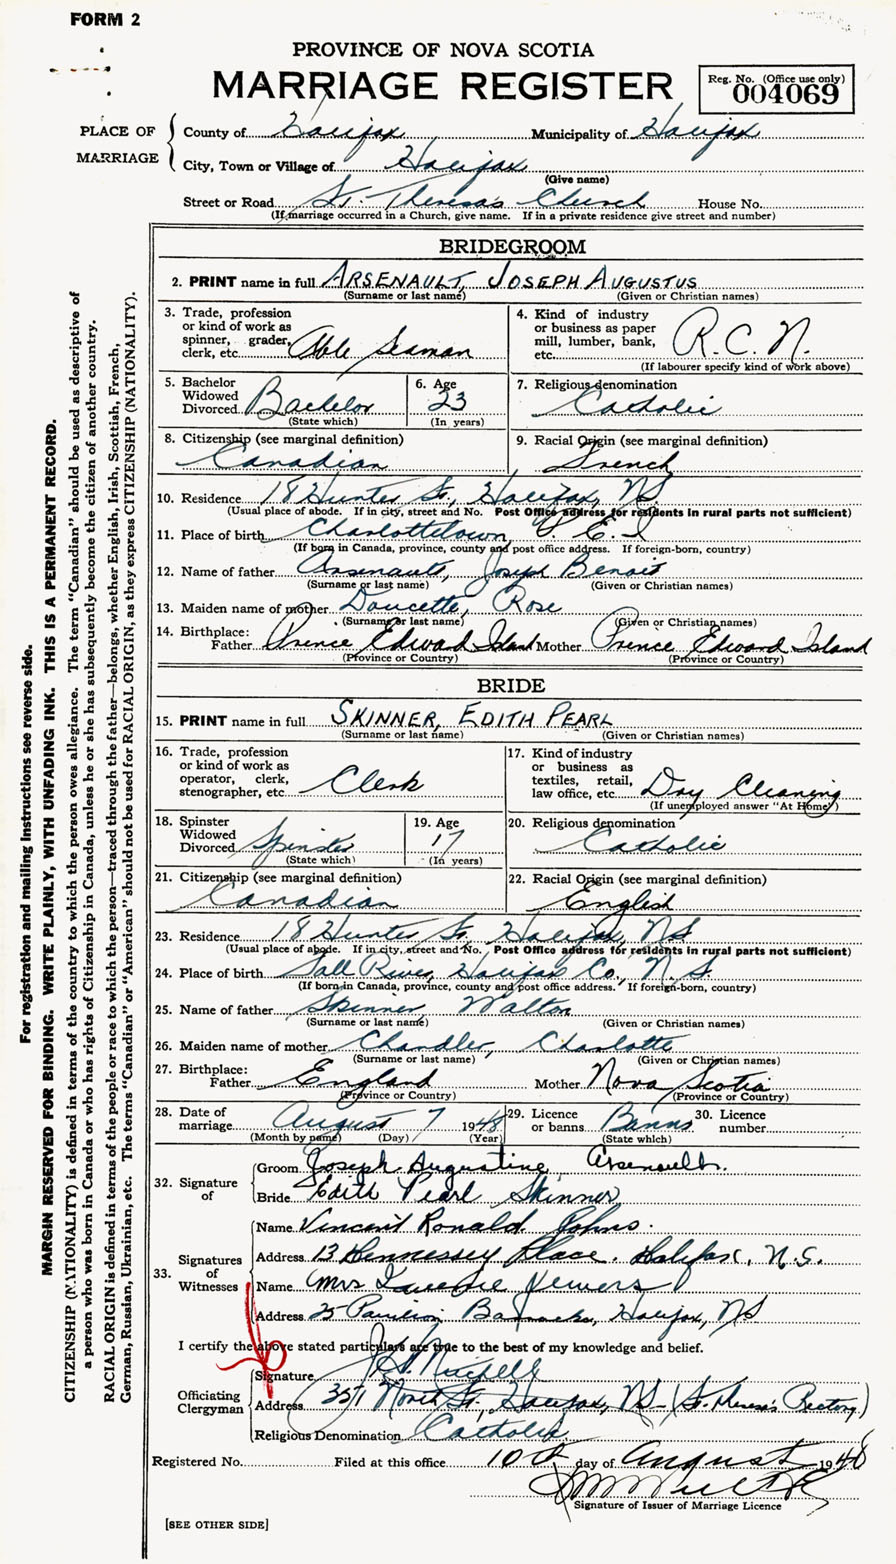 FORM 2
PROVINCE OF NOVA SCOTIA
MARRIAGE REGISTER
Reg. No. (Office use only)
004069
PLACE OF MARRIAGE
County of Halifax Municipality of Halifax
City, Town or Village of Halifax
(Give name)
Street or Road St. Theresa's Church House No.
(If marriage occurred in a Church, give name. If in a private residence give street and number)
BRIDEGROOM
2. PRINT name in full ARSENAULT, JOSEPH AUGUSTUS
(Surname or last name) (Given or Christian names)
3. Trade, profession or kind of work as spinner, grader, clerk, etc. Able Seaman
4. Kind of industry or business as paper mill, lumber, bank, etc. R.C.N.
(If labourer specify kind of work above)
5. Bachelor Widowed Divorced Bachelor
(State which)
6. Age 23
(In years)
7. Religious denomination Catholic
8. Citizenship (see marginal definition) Canadian
9. Racial Origin (see marginal definition) French
10. Residence 18 Hunter St., Halifax, NS
(Usual place of abode. If in city, street and No. Post Office address for residents in rural parts not sufficient)
11. Place of birth Charlottetown, P.E.I
(If born in Canada, province, county and post office address. If foreign-born, country)
12. Name of father Arsenault, Joseph Benoit
(Surname or last name) (Given or Christian names)
13. Maiden name of mother Doucette, Rose
(Surname or last name) (Given or Christian names)
14. Birthplace: Father Prince Edward Island Mother Prince Edward Island
(Province or Country) (Province or Country)
BRIDE
15. PRINT name in full SKINNER, EDITH PEARL
(Surname or last name) (Given or Christian names)
16. Trade, profession or kind of work as operator, clerk, stenographer, etc. Clerk
17. Kind of industry or business as textiles, retail, law office, etc. Dry Cleaning
(If unemployed answer "At Home")
18. Spinster Widowed Divorced Spinster
(State which)
19. Age 17
(In years)
20. Religious denomination Catholic
21. Citizenship (see marginal definition) Canadian
22. Racial Origin (see marginal definition) English
23. Residence 18 Hunter St., Halifax, NS
(Usual place of abode. If in city, street and No. Post Office address for residents in rural parts not sufficient)
24. Place of birth River, Halifax Co., N.S.
(If born in Canada, province, county and post office address. If foreign-born, country)
25. Name of father Skinner Walton
(Surname or last name) (Given or Christian names)
26. Maiden name of mother Chandler, Charlotte
(Surname or last name) (Given or Christian names)
27. Birthplace: Father England Mother Nova Scotia
(Province or Country) (Province or Country)
28. Date of marriage August 7 1948
(Month by name) (Day) (Year)
29. Licence or banns Banns
(State which)
30. Licence number
32. Signature of
Groom Joseph Augustine Arsenault.
Bride Edith Pearl Skinner
33. Signatures of Witnesses
Name Vincent Ronald Johns.
Address 13 Hennessey Place. Halifax, N.S.
Name Mrs
Address 25 Pavilion Barracks, Halifax, NS
I certify the above stated particulars are true to the best of my knowledge and belief.
Officiating Clergyman
Signature
Address 3571 North St., Halifax, NS (St. Theresa's Rectory)
Religious Denomination Catholic
Registered No. Filed at this office 10th day of August 1948
Signature of Issuer of Marriage Licence
[SEE OTHER SIDE]
For registration and mailing instructions see reverse side.
MARGIN RESERVED FOR BINDING. WRITE PLAINLY, WITH UNFADING INK. THIS IS A PERMANENT RECORD.
CITIZENSHIP (NATIONALITY) is defined in terms of the country to which the person owes allegiance. The term "Canadian" should be used as descriptive of
a person who was born in Canada or who has rights of Citizenship in Canada, unless he or she has subsequently become the citizen of another country.
RACIAL ORIGIN is defined in terms of the people or race to which the person—traced through the father—belongs, whether English, Irish, Scottish, French,
German, Russian, Ukrainian, etc. The terms "Canadian" or "American" should not be used for RACIAL ORIGIN, as they express CITIZENSHIP (NATIONALITY).